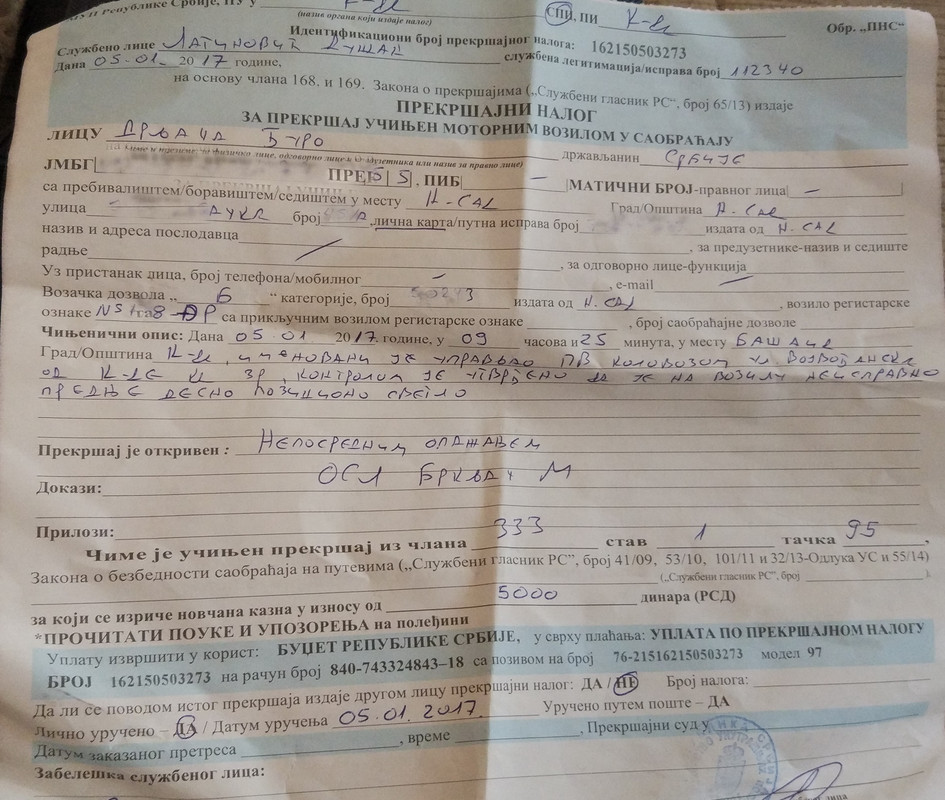 МУП Републике Србије, ПУ у К-да
СПИ, ПИ К-да Обр. „ПНС“
(назив органа који издаје налог)
Идентификациони број прекршајног налога: 162150503273
Службено лице Латиновић Душан службена легитимација/исправа број 112340
Дана 05.01. 2017 године,
на основу члана 168. и 169. Закона о прекршајима („Службени гласник РС“, број 65/13) издаје
ПРЕКРШАЈНИ НАЛОГ
ЗА ПРЕКРШАЈ УЧИЊЕН МОТОРНИМ ВОЗИЛОМ У САОБРАЋАЈУ
ЛИЦУ Дрљача Ђуро држављанин Србије
ЈМБГ , ПИБ – МАТИЧНИ БРОЈ-правног лица –
са пребивалиштем/боравиштем/седиштем у месту Н.САЦ Град/Општина Н.САЦ
улица број , лична карта/путна исправа број издата од Н.САЦ
назив и адреса послодавца , за предузетнике-назив и седиште
радње , за одговорно лице-функција
Уз пристанак лица, број телефона/мобилног – , e-mail
Возачка дозвола „ Б “ категорије, број издата од Н.САЦ , возило регистарске
ознаке NS са прикључним возилом регистарске ознаке , број саобраћајне дозволе
Чињенични опис: Дана 05 01 2017. године, у 09 часова и 25 минута, у месту БАШАИД
Град/Општина К-да, именовани је управљао ПВ коловозом ул. Војвођанска
од К-де ка ЗР, контролом је утврђено да је на возилу неисправно
предње десно позиционо светло
Прекршај је откривен : Непосредним опажањем
Докази: ОСЛ Бркљач М
Прилози:
Чиме је учињен прекршај из члана 333 став 1 тачка 95 ,
Закона о безбедности саобраћаја на путевима („Службени гласник РС“, број 41/09, 53/10, 101/11 и 32/13-Одлука УС и 55/14)
(„Службени гласник РС“, број ).
за који се изриче новчана казна у износу од 5000 динара (РСД)
*ПРОЧИТАТИ ПОУКЕ И УПОЗОРЕЊА на полеђини
Уплату извршити у корист: БУЏЕТ РЕПУБЛИКЕ СРБИЈЕ, у сврху плаћања: УПЛАТА ПО ПРЕКРШАЈНОМ НАЛОГУ
БРОЈ 162150503273 на рачун број 840-743324843–18 са позивом на број 76-215162150503273 модел 97
Да ли се поводом истог прекршаја издаје другом лицу прекршајни налог: ДА / НЕ Број налога:
Лично уручено – ДА / Датум уручења 05.01.2017. Уручено путем поште – ДА
Датум заказаног претреса , време , Прекршајни суд у
Забелешка службеног лица: